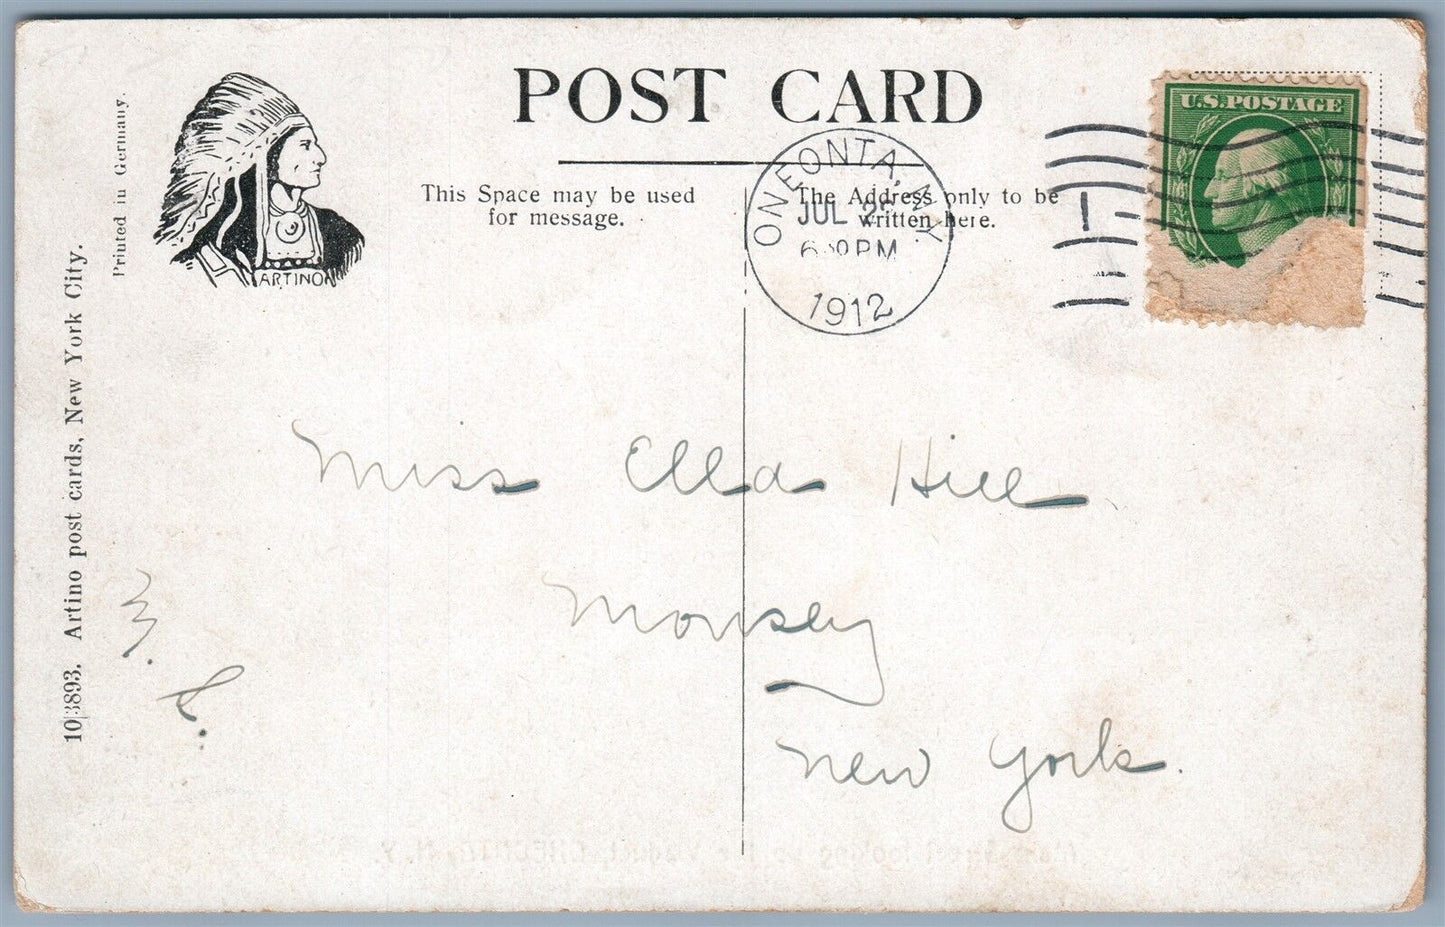 POST CARD
This Space may be used
for message.
The Address only to be
written here.
ONEONTA, N.Y.
JUL
PM
1912
U.S. POSTAGE
Printed in Germany.
ARTINO
Artino post cards, New York City.
Miss Ella Hill
Monsey
New York.